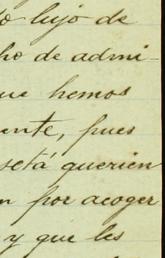 to lujo de
ho de admi-
que hemos
ante, pues
setá querien
n por acoger
y que les